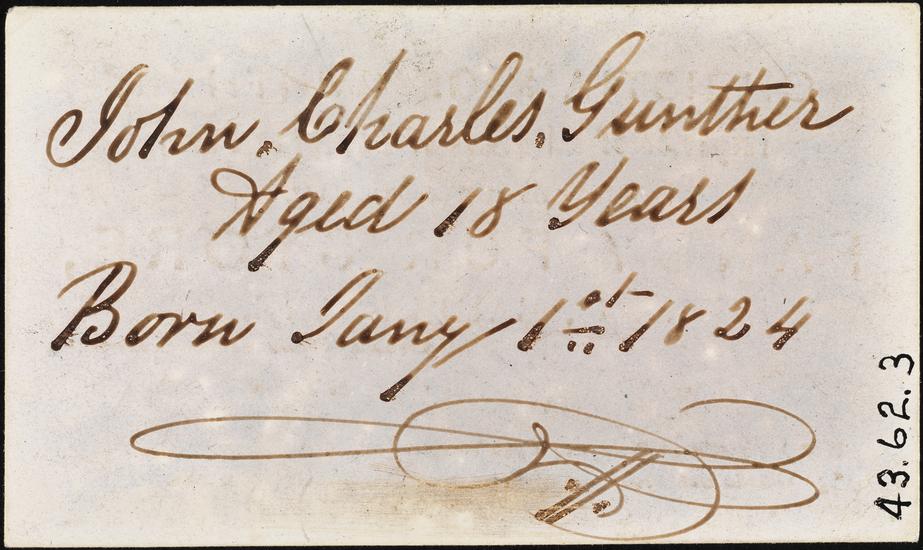 John, Charles, Gunther
Aged 18 Years
Born Jany 1st 1824
43.62.3